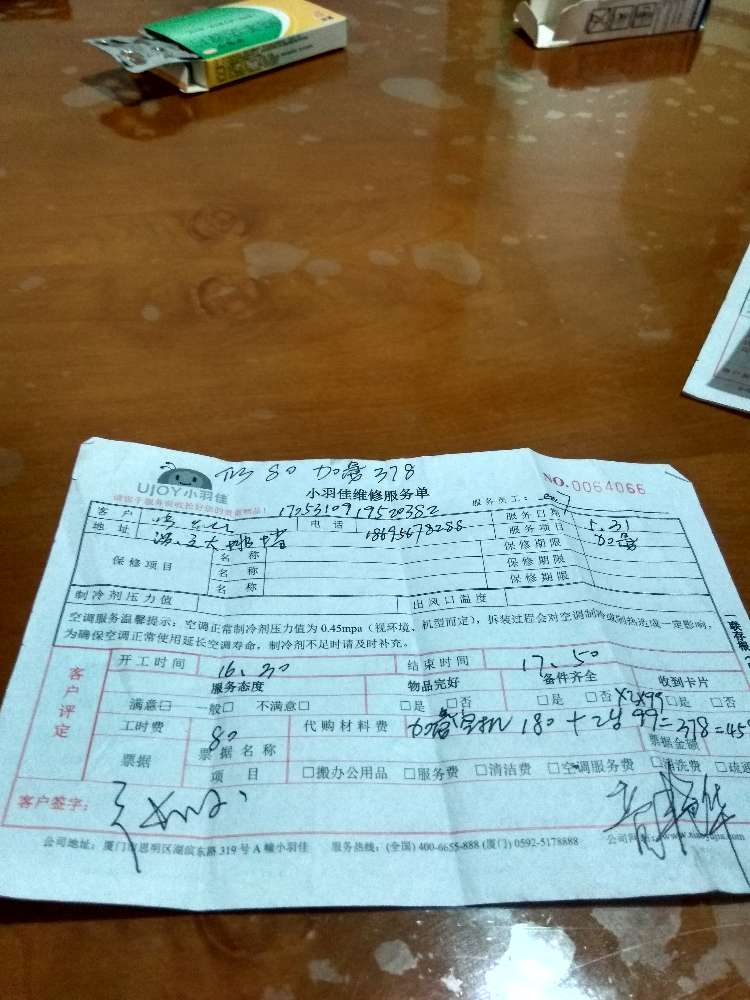 80 加氟 378
UJOY小羽佳
小羽佳维修服务单
NO.0064066
请您于服务验收检好您的贵重物品!
服务员工:
17253109 19520382
客户 电话 服务日期 5.31
地址 18695678288 服务项目 加氟
保修项目 名称 保修期限
名称 保修期限
名称 保修期限
制冷剂压力值 出风口温度
空调服务温馨提示:空调正常制冷剂压力值为 0.45mpa(视环境、机型而定),拆装过程会对空调制冷或制热造成一定影响,
为确保空调正常使用延长空调寿命,制冷剂不足时请及时补充。
客户评定
开工时间 16.30 结束时间 17.50
服务态度 物品完好 备件齐全 收到卡片
满意□ 一般□ 不满意□ □是 □否 □是 □否 □是 □否
X2X99
工时费 80 代购材料费 180 + 2 99 = 378 = 45
票据 票据名称 票据金额
项目 □搬办公用品 □服务费 □清洁费 □空调服务费 □清洗费 □疏通
客户签字:
公司地址:厦门市思明区湖滨东路 319 号 A 幢小羽佳 服务热线:(全国) 400-6655-888 (厦门) 0592-5178888